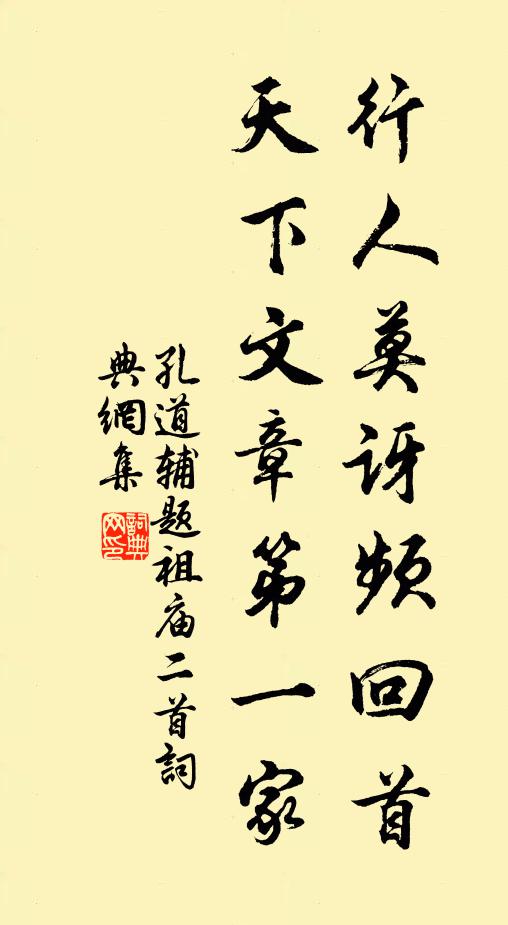 行人莫讶频回首
天下文章第一家
孔道辅题祖庙二首詞
典網集
詞典
网印